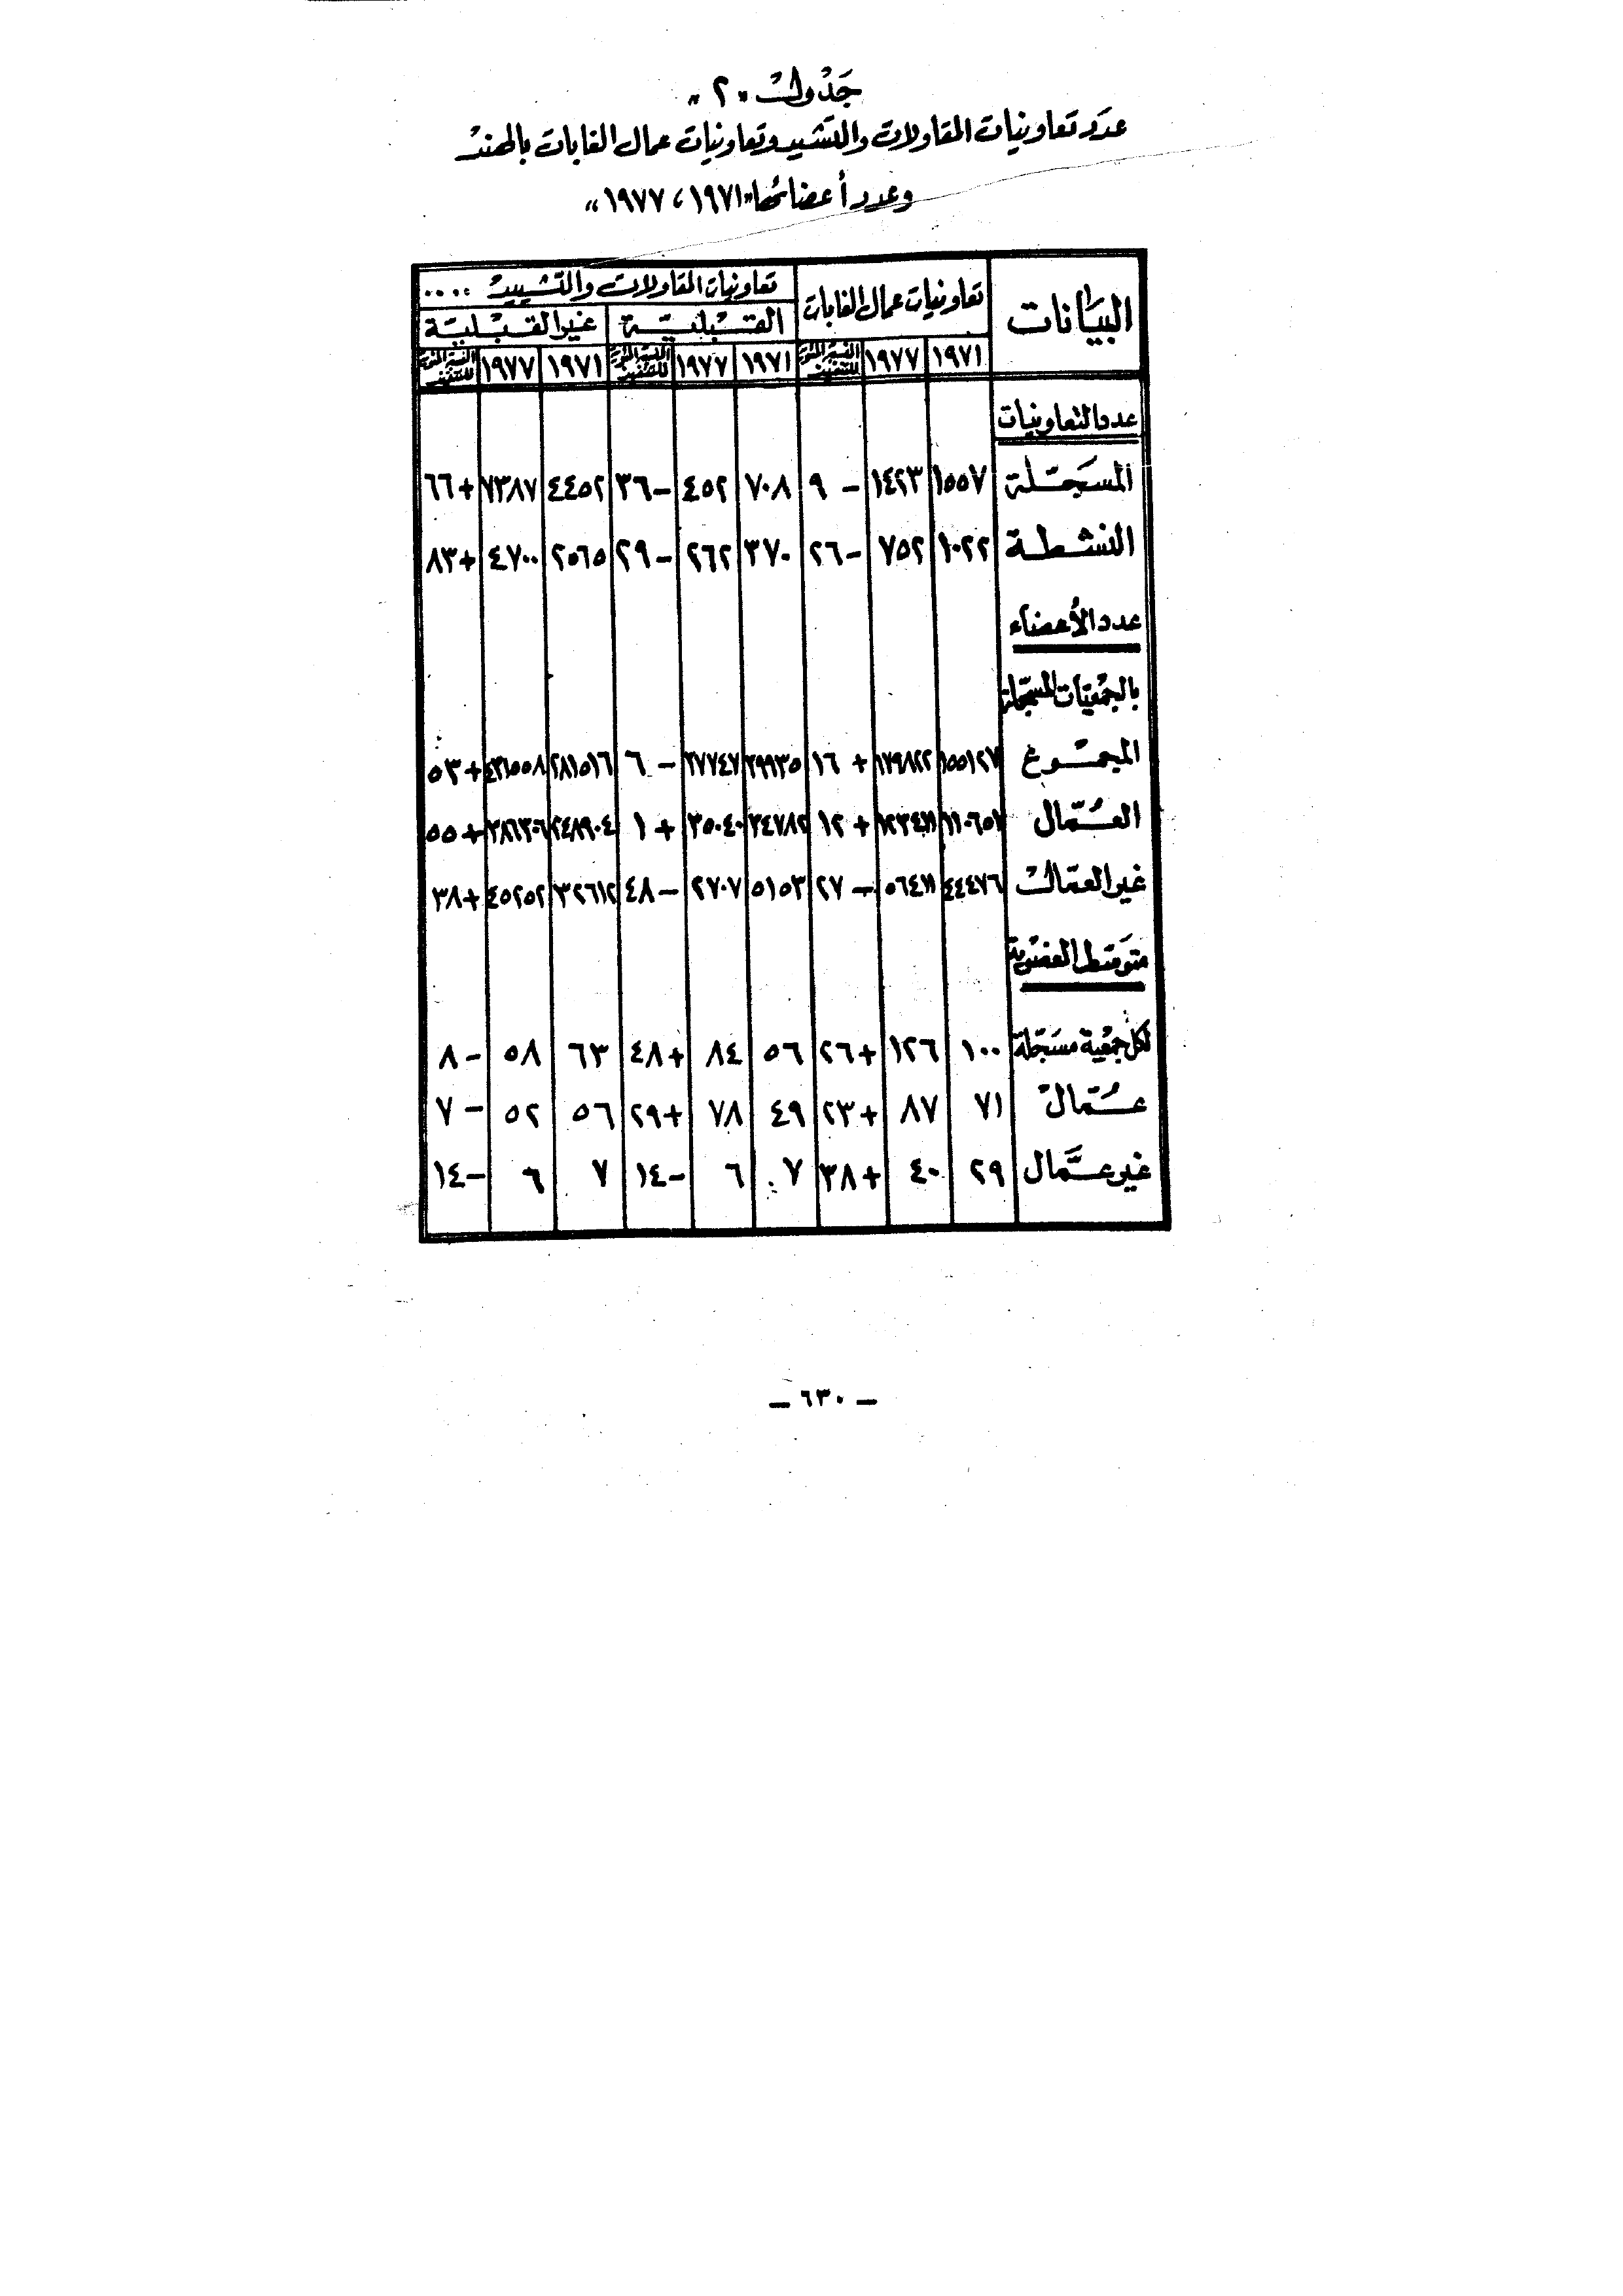 جدول «٢»
عدد تعاونيات المقاولات والتشييد وتعاونيات عمال الغابات بالهند
وعدد أعضائها «١٩٧١ ، ١٩٧٧»
البيانات تعاونيات عمال الغابات تعاونيات المقاولات والتشييد ....
القبلية غير القبلية
١٩٧١ ١٩٧٧ النسبة المئوية للتغير ١٩٧١ ١٩٧٧ النسبة المئوية للتغير ١٩٧١ ١٩٧٧ النسبة المئوية للتغير
عدد التعاونيات
المسجلة ١٥٥٧ ١٤٢٣ - ٩ ٧٠٨ ٤٥٢ - ٣٦ ٤٤٥٢ ٧٣٨٧ + ٦٦
النشطة ١٠٢٢ ٧٥٢ - ٢٦ ٣٧٠ ٢٦٢ - ٢٩ ٢٥٦٥ ٤٧٠٠ + ٨٣
عدد الأعضاء
بالجمعيات المسجلة
المجموع ١٥٥١٢٧ ١٧٩٨٢٢ + ١٦ ٣٩٩٣٥ ٣٧٧٤٧ - ٦ ٢٨١٥١٦ ٤٣١٥٥٨ + ٥٣
العمال ١١٠٦٥١ ١٢٣٤١١ + ١٢ ٣٤٧٨٢ ٣٥٠٤٠ + ١ ٢٤٨٩٠٤ ٣٨٦٣٠٦ + ٥٥
غير العمال ٤٤٤٧٦ ٥٦٤١١ - ٢٧ ٥١٥٣ ٢٧٠٧ - ٤٨ ٣٢٦١٢ ٤٥٢٥٢ + ٣٨
متوسط العضوية
لكل جمعية مسجلة ١٠٠ ١٢٦ + ٢٦ ٥٦ ٨٤ + ٤٨ ٦٣ ٥٨ - ٨
عمال ٧١ ٨٧ + ٢٣ ٤٩ ٧٨ + ٢٩ ٥٦ ٥٢ - ٧
غير عمال ٢٩ ٤٠ + ٣٨ ٧ ٦ - ١٤ ٧ ٦ - ١٤
- ٦٣٠ -